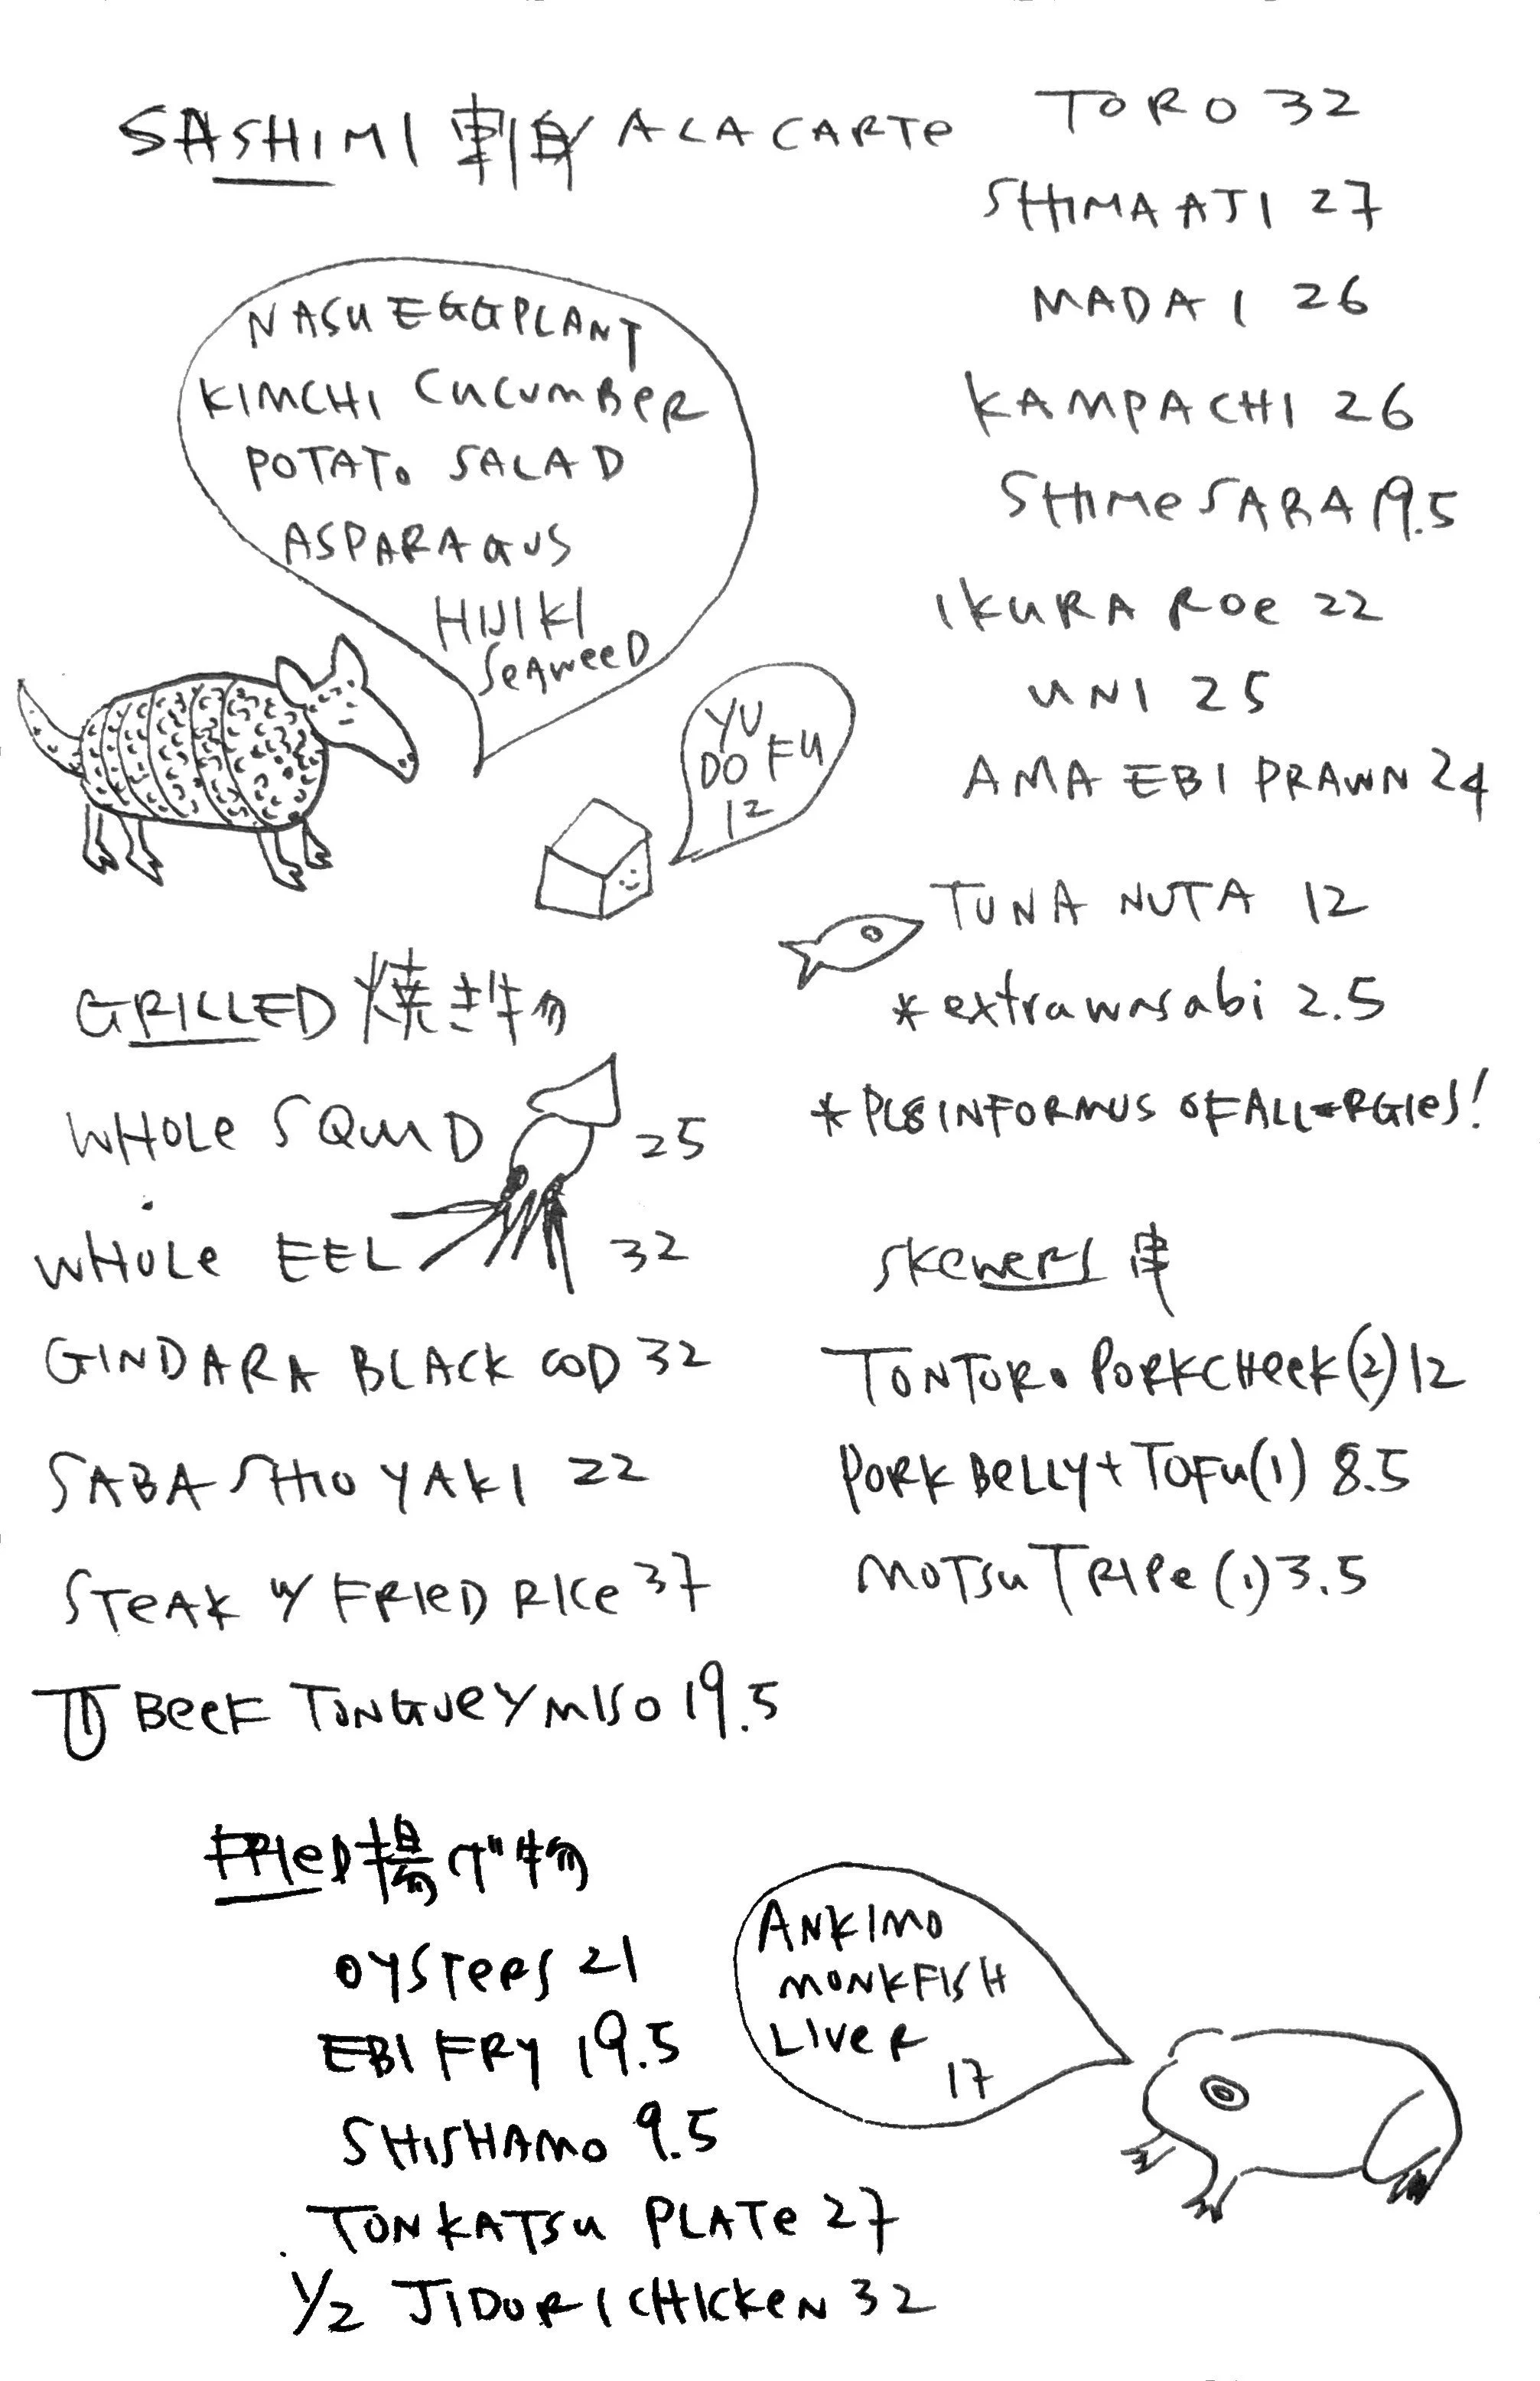 SASHIMI 刺身 A LA CARTE
TORO 32
SHIMA AJI 27
MADAI 26
KAMPACHI 26
SHIME SABA 19.5
IKURA ROE 22
UNI 25
AMA EBI PRAWN 24
TUNA NUTA 12
*extra wasabi 2.5
*PLS INFORM US OF ALLERGIES!
NASU EGGPLANT
KIMCHI CUCUMBER
POTATO SALAD
ASPARAGUS
HIJIKI
SEAWEED
YU
DO FU
12
GRILLED 焼き物
WHOLE SQUID 25
WHOLE EEL 32
GINDARA BLACK COD 32
SABA SHIOYAKI 22
STEAK W/ FRIED RICE 37
BEEF TONGUE Y MISO 19.5
SKEWERS 串
TONTORO PORK CHEEK (2) 12
PORK BELLY + TOFU (1) 8.5
MOTSU TRIPE (1) 3.5
FRIED 揚げ物
OYSTERS 21
EBI FRY 19.5
SHISHAMO 9.5
TONKATSU PLATE 27
1/2 JIDORI CHICKEN 32
ANKIMO
MONKFISH
LIVER
17